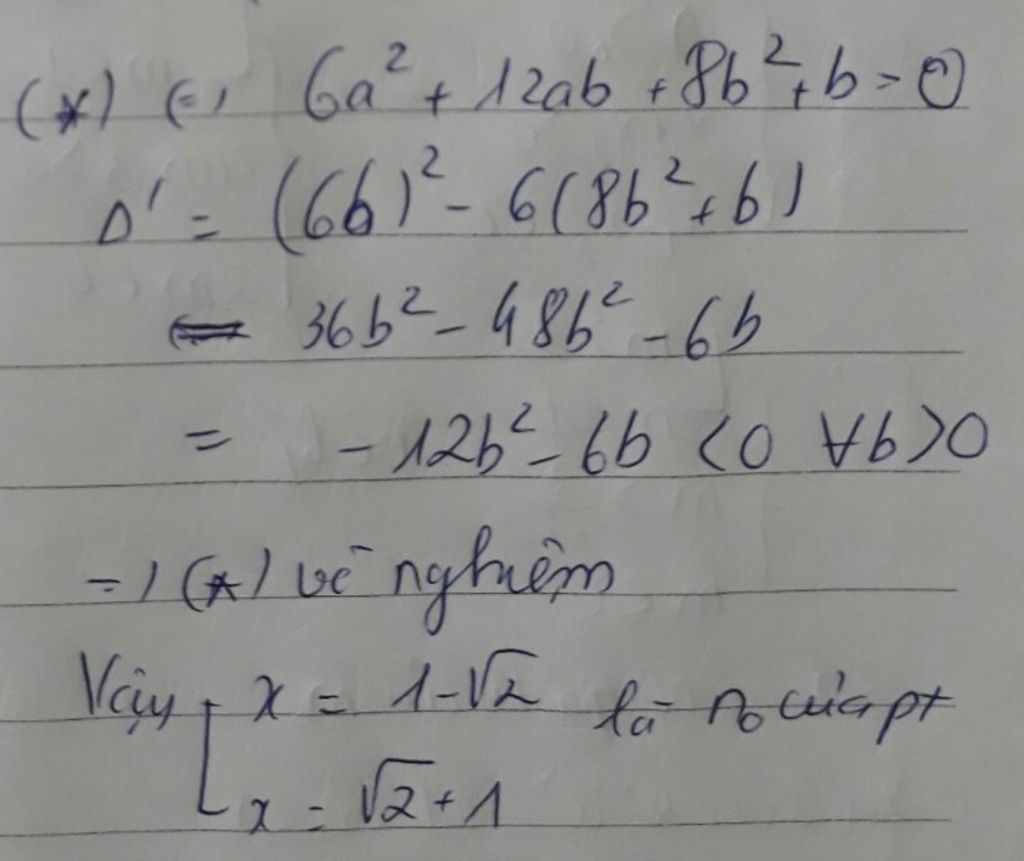 (*) (=) 6a² + 12ab + 8b² + b = 0
Δ' = (6b)² - 6(8b² + b)
= 36b² - 48b² - 6b
= -12b² - 6b < 0 ∀b > 0
=) (*) vô nghiệm
Vậy [ x = 1 - √2 là no của pt
x = √2 + 1